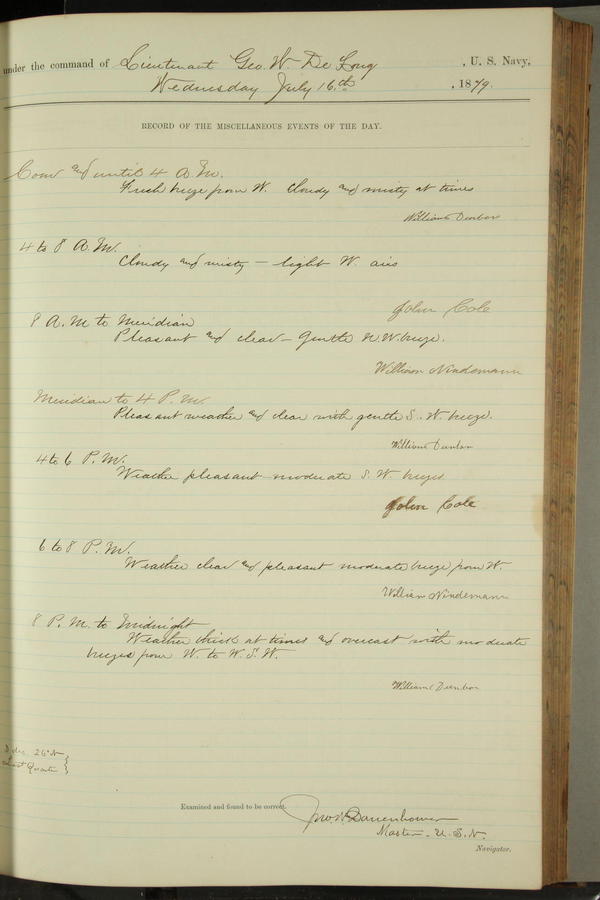 under the command of Lieutenant Geo. W. De Long, U. S. Navy,
Wednesday July 16th, 1879.
RECORD OF THE MISCELLANEOUS EVENTS OF THE DAY.
Com and until 4 A.M.
Fresh breeze from W. Cloudy and misty at times
William Dunbar
4 to 8 A.M.
Cloudy and misty — light W. airs
John Cole
8 A.M to Meridian
Pleasant and clear — Gentle N.W. breeze.
William Nindemann
Meridian to 4 P.M.
Pleasant weather and clear with gentle S. W. breeze.
William Dunbar
4 to 6 P.M.
Weather pleasant moderate S. W. breezes
John Cole
6 to 8 P.M.
Weather clear and pleasant moderate breeze from W.
William Nindemann
8 P.M. to Midnight
Weather thick at times and overcast with moderate
breezes from W. to W.S.W.
William Dunbar
dec. 26° N
Last Quarter
Examined and found to be correct.
Jno. W. Danenhower
Master - U.S.N.
Navigator.